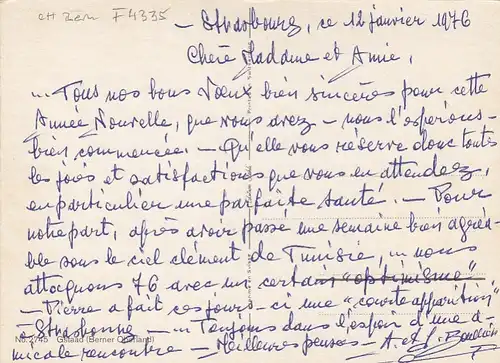 CH Bern F4335
- Strasbourg, ce 12 janvier 1976
Chère Madame et Amie,
... Tous nos bons Vœux bien sincères pour cette
Année Nouvelle, que vous avez - nous l'espérons -
bien commencée. - Qu'elle vous réserve donc toutes
les joies et satisfactions que vous en attendez,
en particulier une parfaite santé. - Pour
notre part, après avoir passé une semaine bien agréa-
ble sous le ciel clément de Tunisie, ... nous
attaquons 76 avec un certain "optimisme"
- Pierre a fait ces jours-ci une "courte apparition"
à Strasbourg - ... Toujours dans l'espoir d'une a-
No. 2745 Gstaad (Berner Oberland)
micale rencontre - Meilleures pensées - A. et